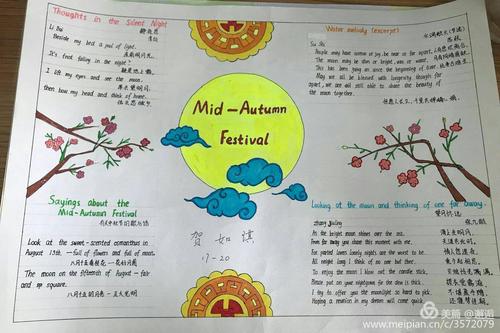 Thoughts in the Silent Night
静夜思
Li Bai
李白
Beside my bed a pool of light.
床前明月光。
It's frost falling in the night?
疑是地上霜。
I lift my eyes and see the moon.
举头望明月。
then bow my head and think of home.
低头思故乡。
Mid-Autumn
Festival
Water melody (excerpt)
水调歌头(节选)
Su Shi
苏轼
People may have sorrow or joy, be near or far apart,
人有悲欢离合,
The moon may be dim or bright, wax or wane,
月有阴晴圆缺,
This has been going on since the beginning of time.
此事古难全。
May we all be blessed with longevity though far
apart, we are still able to share the beauty of
the moon together.
但愿人长久,千里共婵娟。
Sayings about the
Mid-Autumn Festival
Look at the sweet-scented osmanthus in
August 15th.—full of flowers and full of moon.
The moon on the fifteenth of August-fair
and square.
八月十五的月亮—正大光明
贺如淇
17-20
Looking at the moon and thinking of one far away.
望月怀远
zhang Jiuling
张九龄
As the bright moon shines over the sea,
海上生明月,
From far away you share this moment with me.
天涯共此时。
For parted lovers lonely nights are the worst to be.
情人怨遥夜,
All night long I think of no one but thee.
竟夕起相思。
To enjoy the moon I blow out the candle stick,
灭烛怜光满,
Please put on your nightgown for the dew is thick.
披衣觉露滋。
I try to offer you the moonlight so hard to pick,
不堪盈手赠,
Hoping a reunion in my dream will come quick.
还寝梦佳期。
美篇 @邂逅
www.meipian.cn/c/3572079